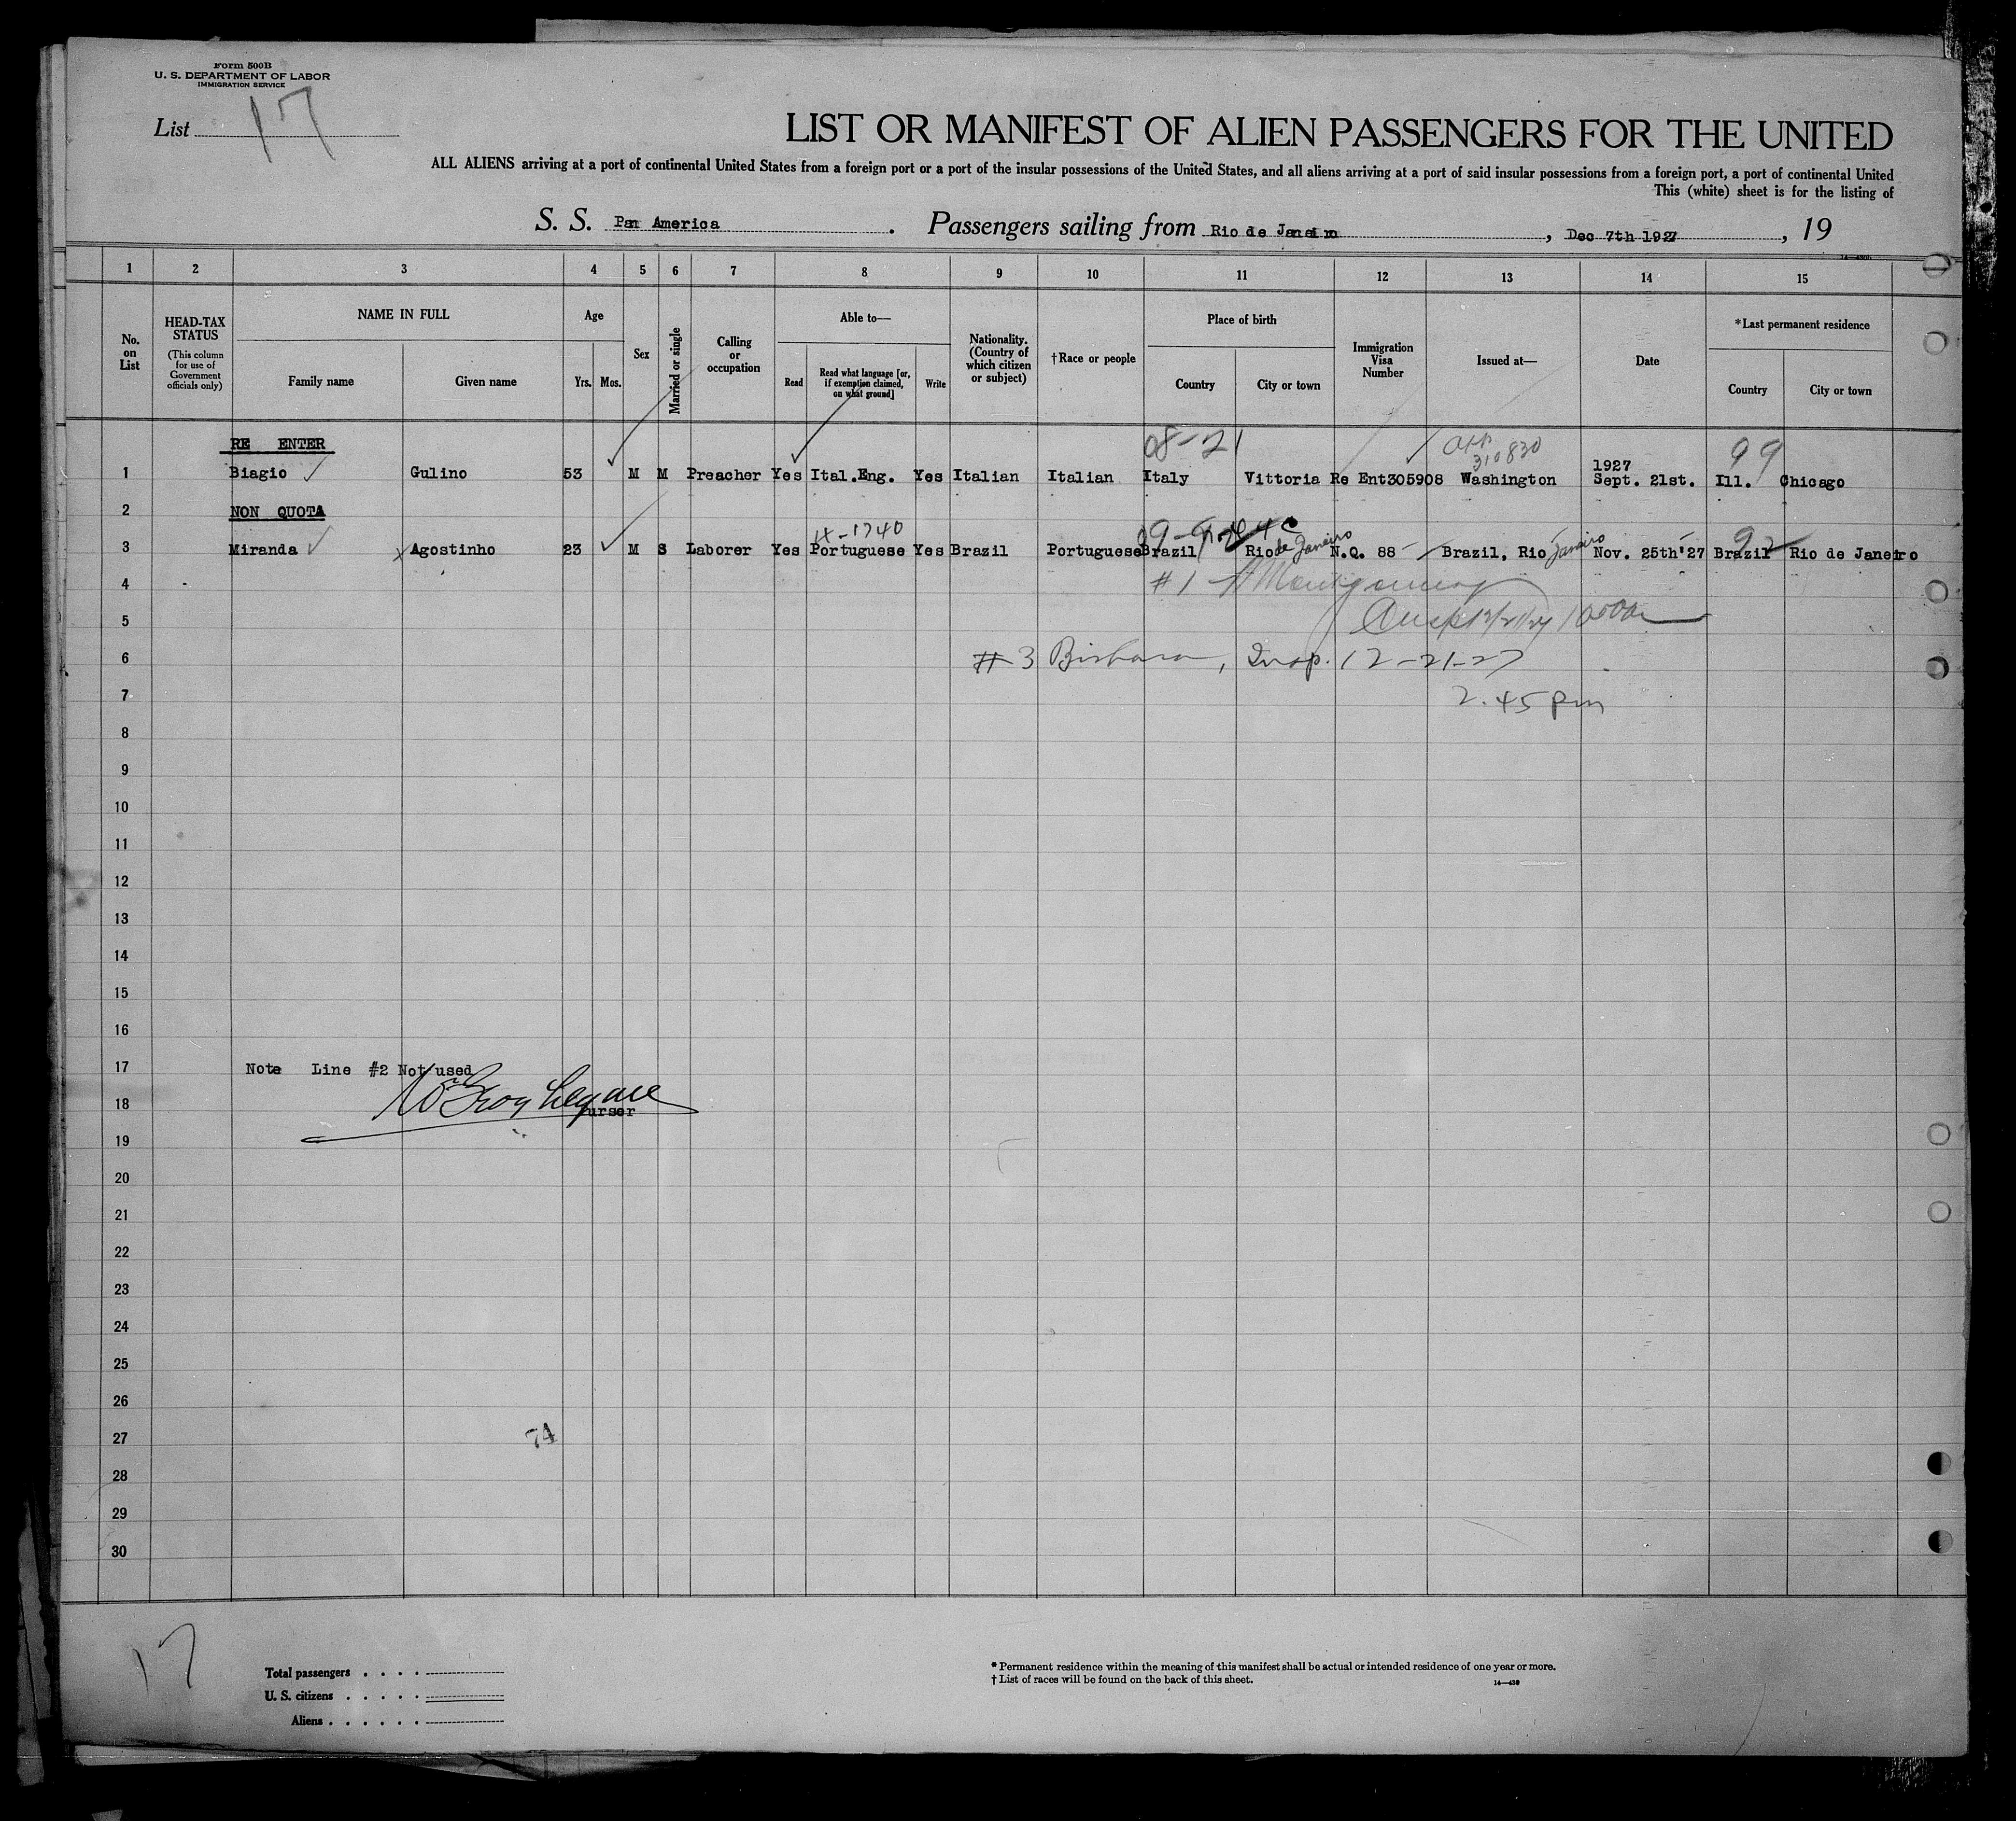 Form 500B
U. S. DEPARTMENT OF LABOR
IMMIGRATION SERVICE
List 17
LIST OR MANIFEST OF ALIEN PASSENGERS FOR THE UNITED
ALL ALIENS arriving at a port of continental United States from a foreign port or a port of the insular possessions of the United States, and all aliens arriving at a port of said insular possessions from a foreign port, a port of continental United
This (white) sheet is for the listing of
S. S. Pan America. Passengers sailing from Rio de Janeiro, Dec 7th 1927, 19
1 2 3 4 5 6 7 8 9 10 11 12 13 14 15
No. on List
HEAD-TAX STATUS
(This column for use of Government officials only)
NAME IN FULL
Family name Given name
Age
Yrs. Mos.
Sex
Married or single
Calling or occupation
Able to—
Read
Read what language [or, if exemption claimed, on what ground]
Write
Nationality. (Country of which citizen or subject)
†Race or people
Place of birth
Country City or town
Immigration Visa Number
Issued at—
Date
*Last permanent residence
Country City or town
RE ENTER
08-21 310830 99
1 Biagio Gulino 53 M M Preacher Yes Ital.Eng. Yes Italian Italian Italy Vittoria Re Ent305908 Washington 1927 Sept. 21st. Ill. Chicago
2 NON QUOTA
1X-1740
3 Miranda x Agostinho 23 M S Laborer Yes Portuguese Yes Brazil Portuguese Brazil Rio de Janeiro N.Q. 88 Brazil, Rio Janeiro Nov. 25th'27 Brazil Rio de Janeiro
92
4 #1 Montgomery
5
6 #3 Insp. 12-21-27
7 2.45 pm
8
9
10
11
12
13
14
15
16
17 Note Line #2 Not used
18 Purser
19
20
21
22
23
24
25
26
27 74
28
29
30
17
Total passengers
U. S. citizens
Aliens
* Permanent residence within the meaning of this manifest shall be actual or intended residence of one year or more.
† List of races will be found on the back of this sheet.
14—430